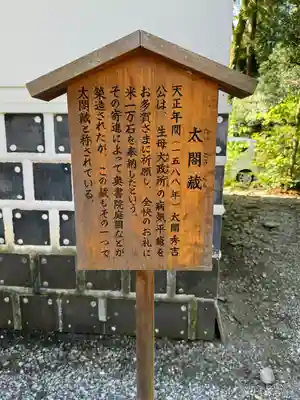 太閤蔵
天正年間(一五八八年)太閤秀吉
公は、生母大政所の病気平癒を
お多賀さまに祈願し、全快のお礼に
米一万石を奉納したという。
その寄進によって奥書院庭園などが
築造されたが、この蔵もその一つで
太閤蔵と称されている。